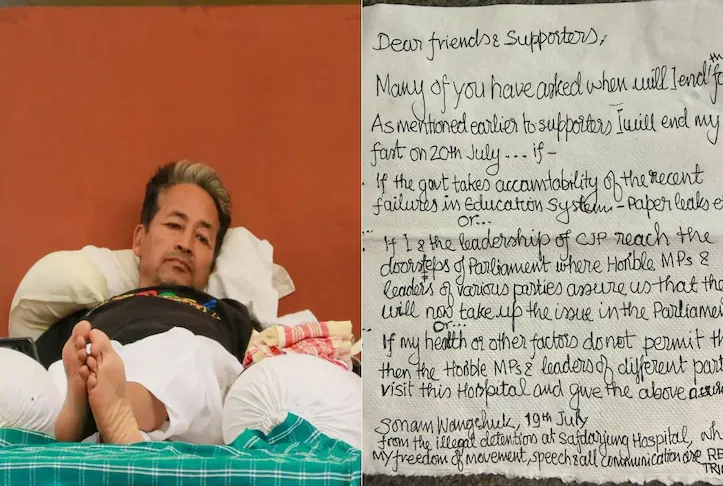 Dear friends & Supporters,
Many of you have asked when will I end
As mentioned earlier to supporters I will end my
fast on 20th July ... if -
If the govt takes accountability of the recent
failures in Education System - Paper leaks
Or...
If I & the leadership of CJP reach the
doorsteps of Parliament where Hon'ble MPs &
leaders of various parties assure us that
will now take up the issue in the
Or...
If my health or other factors do not permit
then the Hon'ble MPs & leaders of different
visit this Hospital and give the above
Sonam Wangchuk, 19th July
from the illegal detention at Safdarjung Hospital,
My freedom of movement, speech & all communication are